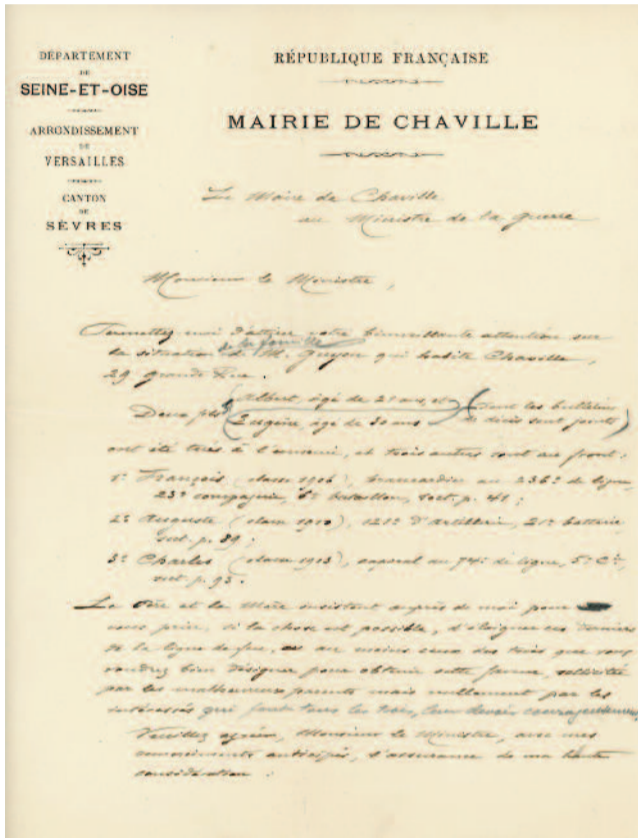 DÉPARTEMENT
DE
SEINE-ET-OISE
ARRONDISSEMENT
DE
VERSAILLES
CANTON
DE
SÈVRES
RÉPUBLIQUE FRANÇAISE
MAIRIE DE CHAVILLE
Le Maire de Chaville
au Ministre de la guerre
Monsieur le Ministre,
Permettez moi d'attirer votre bienveillante attention sur
la situation de la famille de M. Guyon qui habite Chaville,
29 grande Rue.
Deux fils (Albert, âgé de 21 ans, et
Eugène, âgé de 30 ans) (dont les bulletins
de décès sont joints)
ont été tués à l'ennemi, et trois autres sont au front :
1º François (classe 1906), brancardier au 236e de ligne,
23e compagnie, 6e bataillon, sect. p. 41 ;
2º Auguste (classe 1910), 121e d'Artillerie, 21e batterie
sect. p. 89 ;
3º Charles (classe 1913), caporal au 74e de ligne, 5e Cie,
sect. p. 93.
Le Père et la Mère insistent auprès de moi pour
vous prier, si la chose est possible, d'éloigner ces derniers
de la ligne de feu, ou au moins ceux des trois que vous
voudrez bien désigner pour obtenir cette faveur sollicitée
par les malheureux parents mais nullement par les
intéressés qui font tous les trois, leur devoir courageusement.
Veuillez agréer, Monsieur le Ministre, avec mes
remerciements anticipés, l'assurance de ma haute
considération.